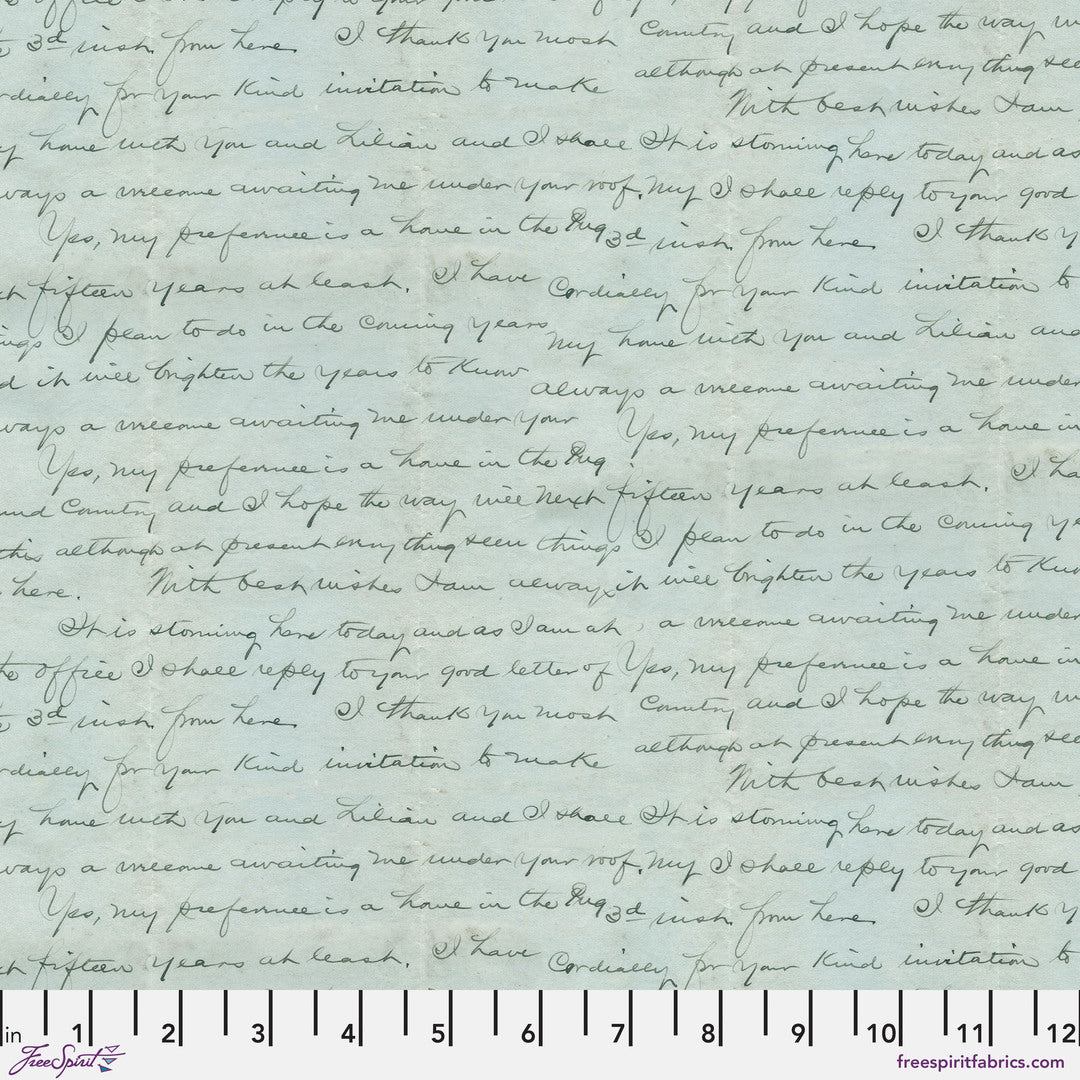 the office I shall reply to your good letter of
3d inst from here I thank you most Country and I hope the way
although at present everything
cordially for your Kind invitation to make
With best wishes I am
home with you and Lilian and I shall It is storming here today and as
always a welcome awaiting me under your roof. My I shall reply to your good
Yes, my preference is a home in the 3d inst from here I thank
fifteen years at least. I have Cordially for your Kind invitation to
I plan to do in the coming years my home with you and Lilian and
it will brighten the years to Know always a welcome awaiting me under
always a welcome awaiting me under your Yes, my preference is a home in
Yes, my preference is a home in the I
and Country and I hope the way will next fifteen years at least.
this although at present everything seem things I plan to do in the coming
here. With best wishes I am always it will brighten the years to
It is storming here today and as I am at a welcome awaiting me under
the office I shall reply to your good letter of Yes, my preference is a home in
3d inst from here I thank you most Country and I hope the way
although at present everything
cordially for your Kind invitation to make
With best wishes I am
home with you and Lilian and I shall It is storming here today and as
always a welcome awaiting me under your roof. My I shall reply to your good
Yes, my preference is a home in the 3d inst from here I thank
fifteen years at least. I have Cordially for your Kind invitation to
in 1 2 3 4 5 6 7 8 9 10 11 12
FreeSpirit freespiritfabrics.com